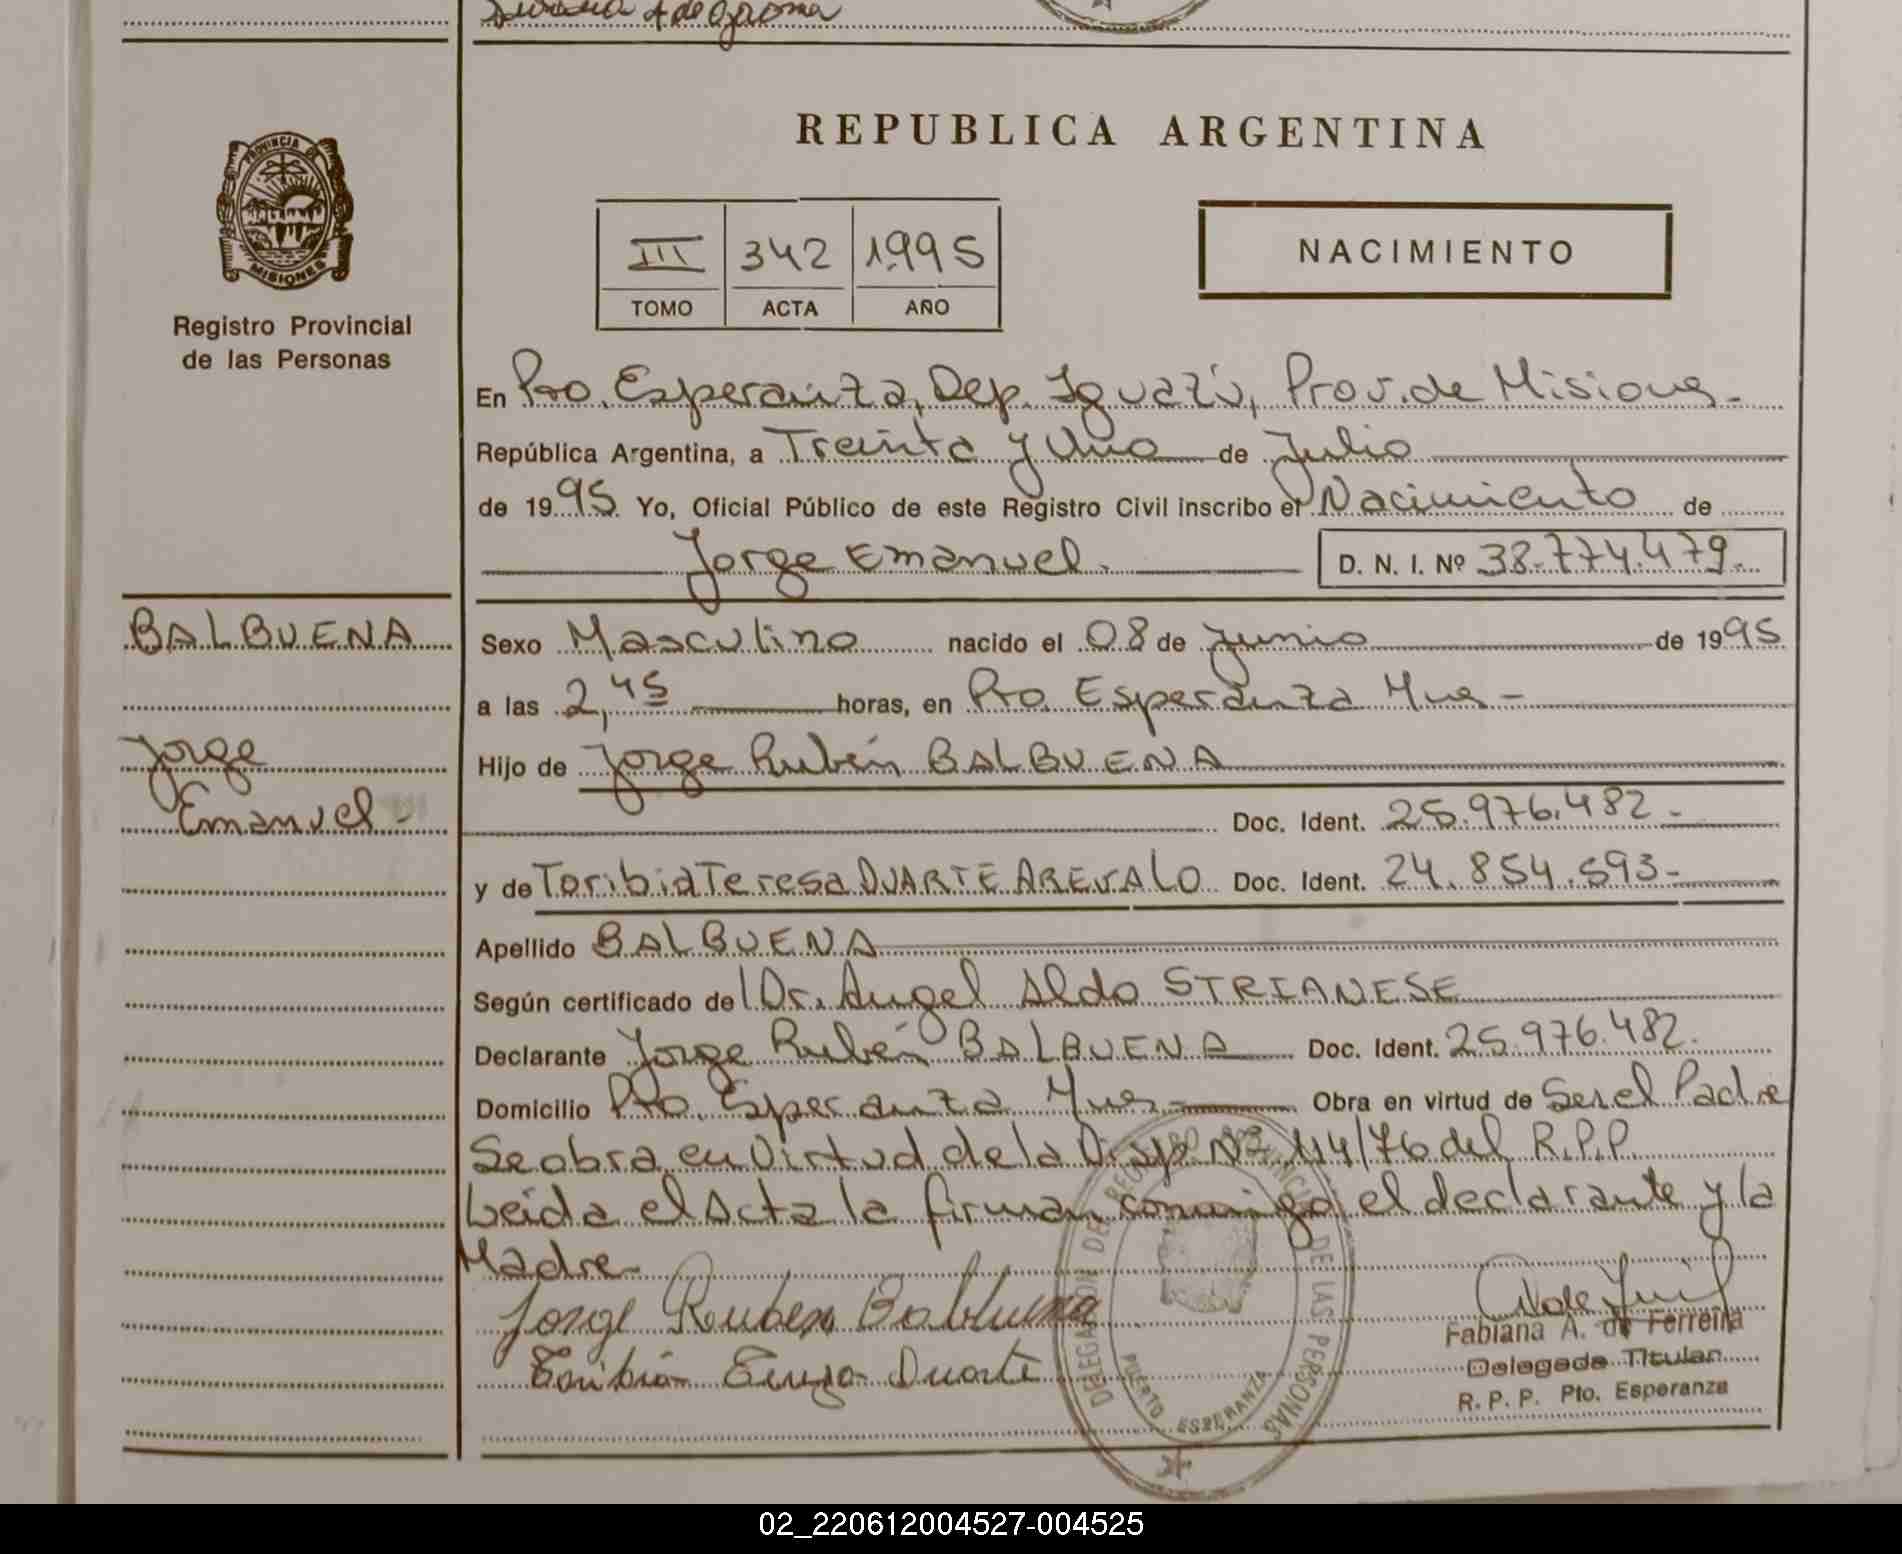 REPUBLICA ARGENTINA
PROVINCIA DE
MISIONES
Registro Provincial
de las Personas
III 342 1995
TOMO ACTA AÑO
NACIMIENTO
En Pto. Esperanza, Dep. Iguazú, Prov. de Misiones.-
República Argentina, a Treinta y Uno de Julio
de 1995 Yo, Oficial Público de este Registro Civil inscribo el Nacimiento de
Jorge Emanuel. D. N. I. Nº 38.774.479.
BALBUENA
Jorge
Emanuel-
Sexo Masculino nacido el 08 de Junio de 1995
a las 2,45 horas, en Pto. Esperanza Mnes-
Hijo de Jorge Rubén BALBUENA
Doc. Ident. 25.976.482.-
y de Toribia Teresa DUARTE AREVALO Doc. Ident. 24.854.593-
Apellido BALBUENA
Según certificado del Dr. Angel Aldo STRIANESE
Declarante Jorge Rubén BALBUENA Doc. Ident. 25.976.482.
Domicilio Pto. Esperanza Mnes- Obra en virtud de Ser el Padre
Se obra en Virtud de la Disp. Nº 114/76 del R.P.P.
Leida el Acta la firman conmigo el declarante y la
Madre-
Jorge Ruben Balbuena
Toribia Duarte
DELEGACION DEL REGISTRO PROVINCIAL DE LAS PERSONAS
PUERTO ESPERANZA
Fabiana A. de Ferreira
Delegada Titular
R. P. P. Pto. Esperanza
02_220612004527-004525